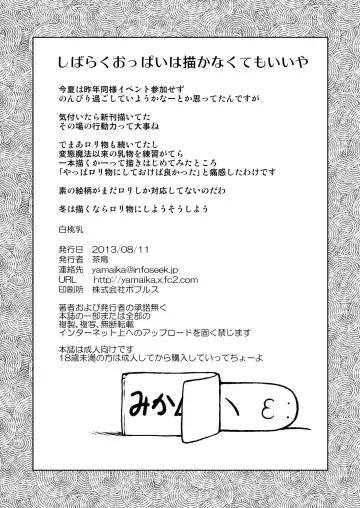 しばらくおっぱいは描かなくてもいいや
今夏は昨年同様イベント参加せず
のんびり過ごしていようかなーとか思ってたんですが
気付いたら新刊描いてた
その場の行動力って大事ね
でまあロリ物も続いてたし
変態魔法以来の乳物を練習がてら
一本描くかーって描きはじめてみたところ
「やっぱロリ物にしておけば良かった」と痛感したわけです
素の絵柄がまだロリしか対応してないのだわ
冬は描くならロリ物にしようそうしよう
白桃乳
発行日 2013/08/11
発行者 茶鳥
連絡先 yamaika@infoseek.jp
URL http://yamaika.x.fc2.com
印刷所 株式会社ポプルス
著者および発行者の承諾無く
本誌の一部または全部の
複製、複写、無断転載
インターネット上へのアップロードを固く禁じます
本誌は成人向けです
18歳未満の方は成人してから購入していってちょーよ
みか